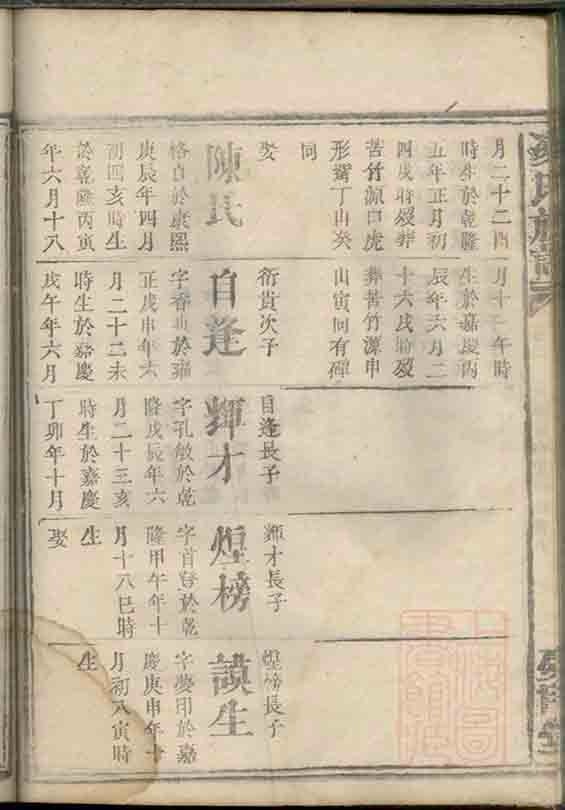 月二十二四
時生於乾隆
五年正月初
四戌時歿葬
苦竹源口虎
形胷丁山癸
同
娶
陳氏
於康熙
庚辰年四月
初四亥時生
於乾隆丙寅
年六月十八
月十一午時
生於嘉慶丙
辰年六月二
十六戌時歿
葬苦竹源申
山寅向有碑
衍貴次子
自逢
字香典於雍
正戊申年六
月二十二未
時生於嘉慶
戊午年六月
自逢長子
輝才
字孔敏於乾
隆戊辰年六
月二十三亥
時生於嘉慶
丁卯年十月
輝才長子
煌榜
字首登於乾
隆甲午年十
月十八巳時
生
娶
煌榜長子
謨生
字夢印於嘉
慶庚申年十
月初八寅時
生
氏族譜